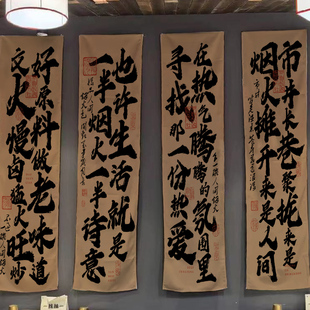 市井长巷聚拢来是
烟火摊开来是人间
在热气腾腾的氛围里
寻找那一份热爱
也许生活就是
一半烟火一半诗意
好原料做老味道
文火慢卤猛火旺炒